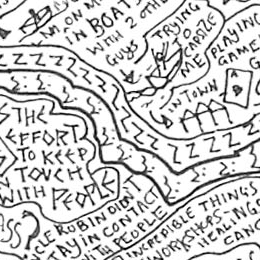 I'M ON M
IN BOAT
WITH 2 OTHE
GUYS
TRYING
TO
CAPSIZE
ME
PLAYING
GAME
IN TOWN
A
ZZZZZZZZZZZZ
THE
EFFORT
TO KEEP
IN TOUCH
WITH PEOPLE
CLE ROBIN DIDN'T
STAY IN CONTACT
WITH PEOPLE
INCREDIBLE THINGS
WORKSHOPS
HEALING
CANC